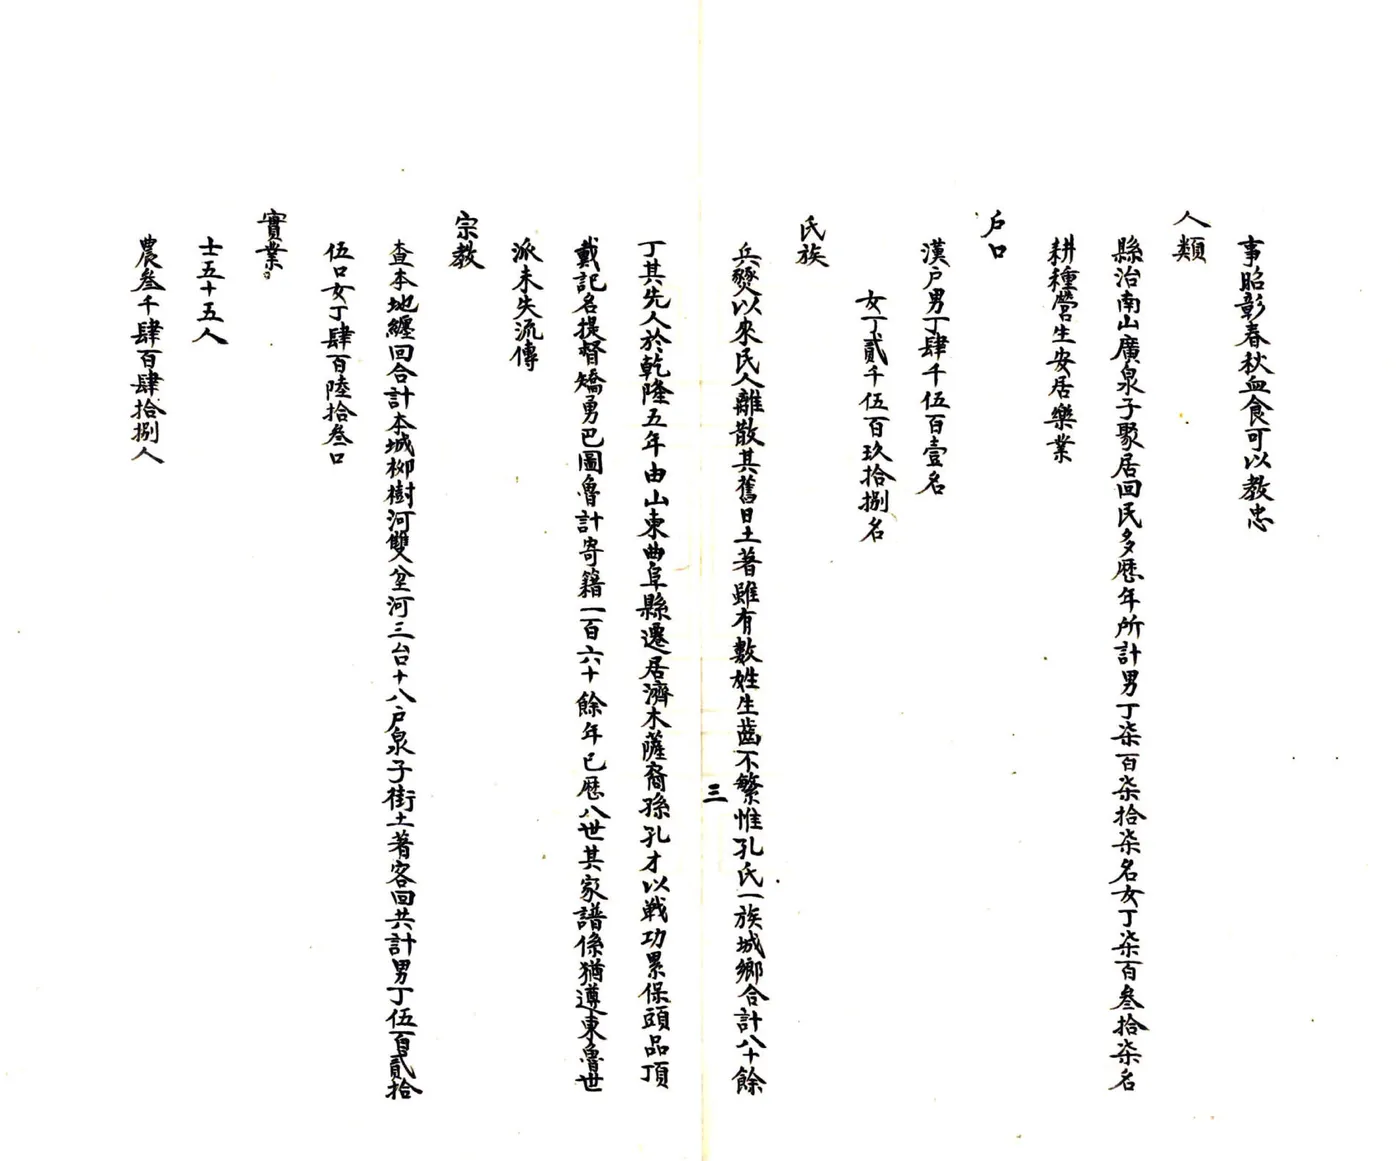 事昭彰春秋血食可以教忠
人類
縣治南山廣泉子聚居回民多歷年所計男丁柒百柒拾柒名女丁柒百叁拾柒名
耕種營生安居樂業
戶口
漢戶男丁肆千伍百壹名
女丁貳千伍百玖拾捌名
氏族
兵燹以來民人離散其舊日土著雖有數姓生齒不繁惟孔氏一族城鄉合計八十餘
三
丁其先人於乾隆五年由山東曲阜縣遷居濟木薩裔孫孔才以戰功累保頭品頂
戴記名提督矯勇巴圖魯計寄籍一百六十餘年已歷八世其家譜係猶遵東魯世
派未失流傳
宗教
查本地纏回合計本城柳樹河雙坌河三台十八戶泉子街土著客回共計男丁伍百貳拾
伍口女丁肆百陸拾叁口
實業
士五十五人
農叁千肆百肆拾捌人